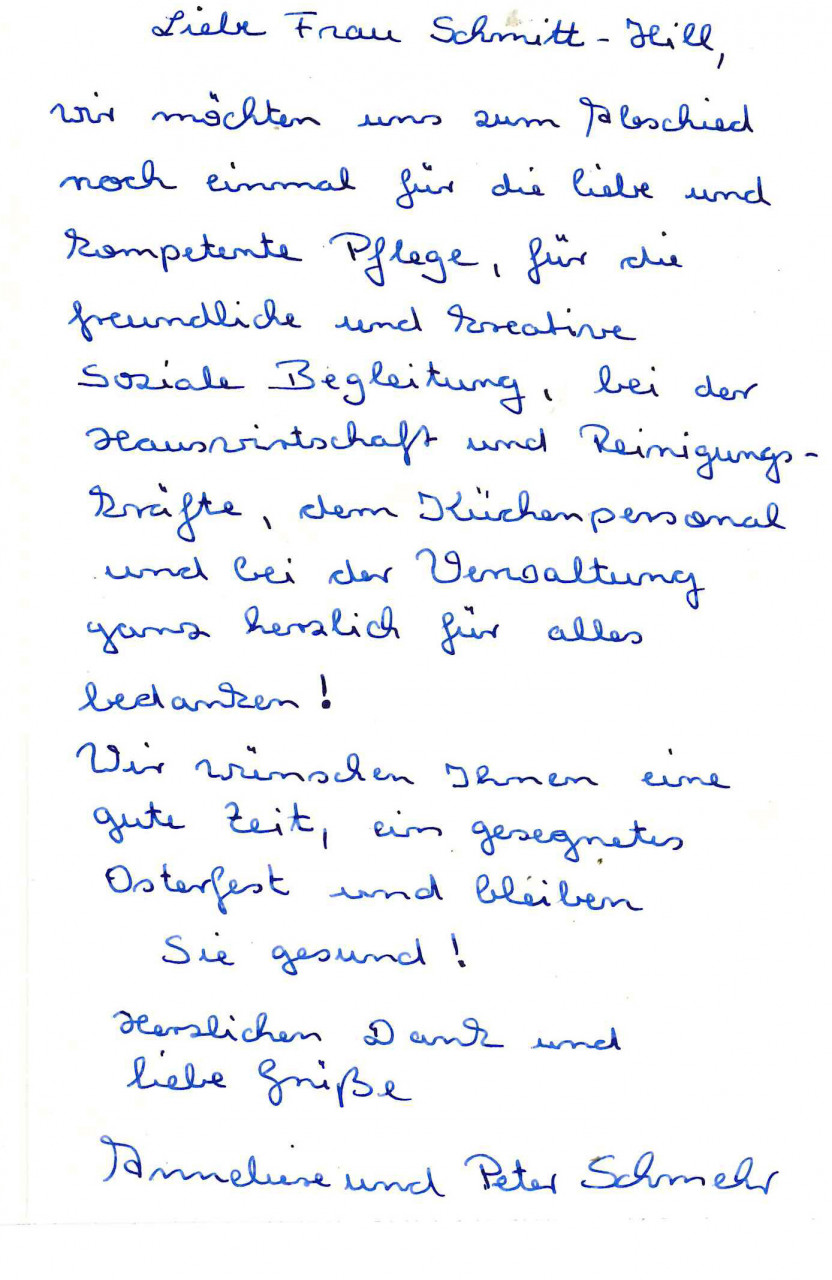 Liebe Frau Schmitt-Hill,
wir möchten uns zum Abschied
noch einmal für die liebe und
kompetente Pflege, für die
freundliche und kreative
Soziale Begleitung, bei der
Hauswirtschaft und Reinigungs-
kräfte, dem Küchenpersonal
und bei der Verwaltung
ganz herzlich für alles
bedanken!
Wir wünschen Ihnen eine
gute Zeit, ein gesegnetes
Osterfest und bleiben
Sie gesund!
Herzlichen Dank und
liebe Grüße
Anneliese und Peter Schmehr